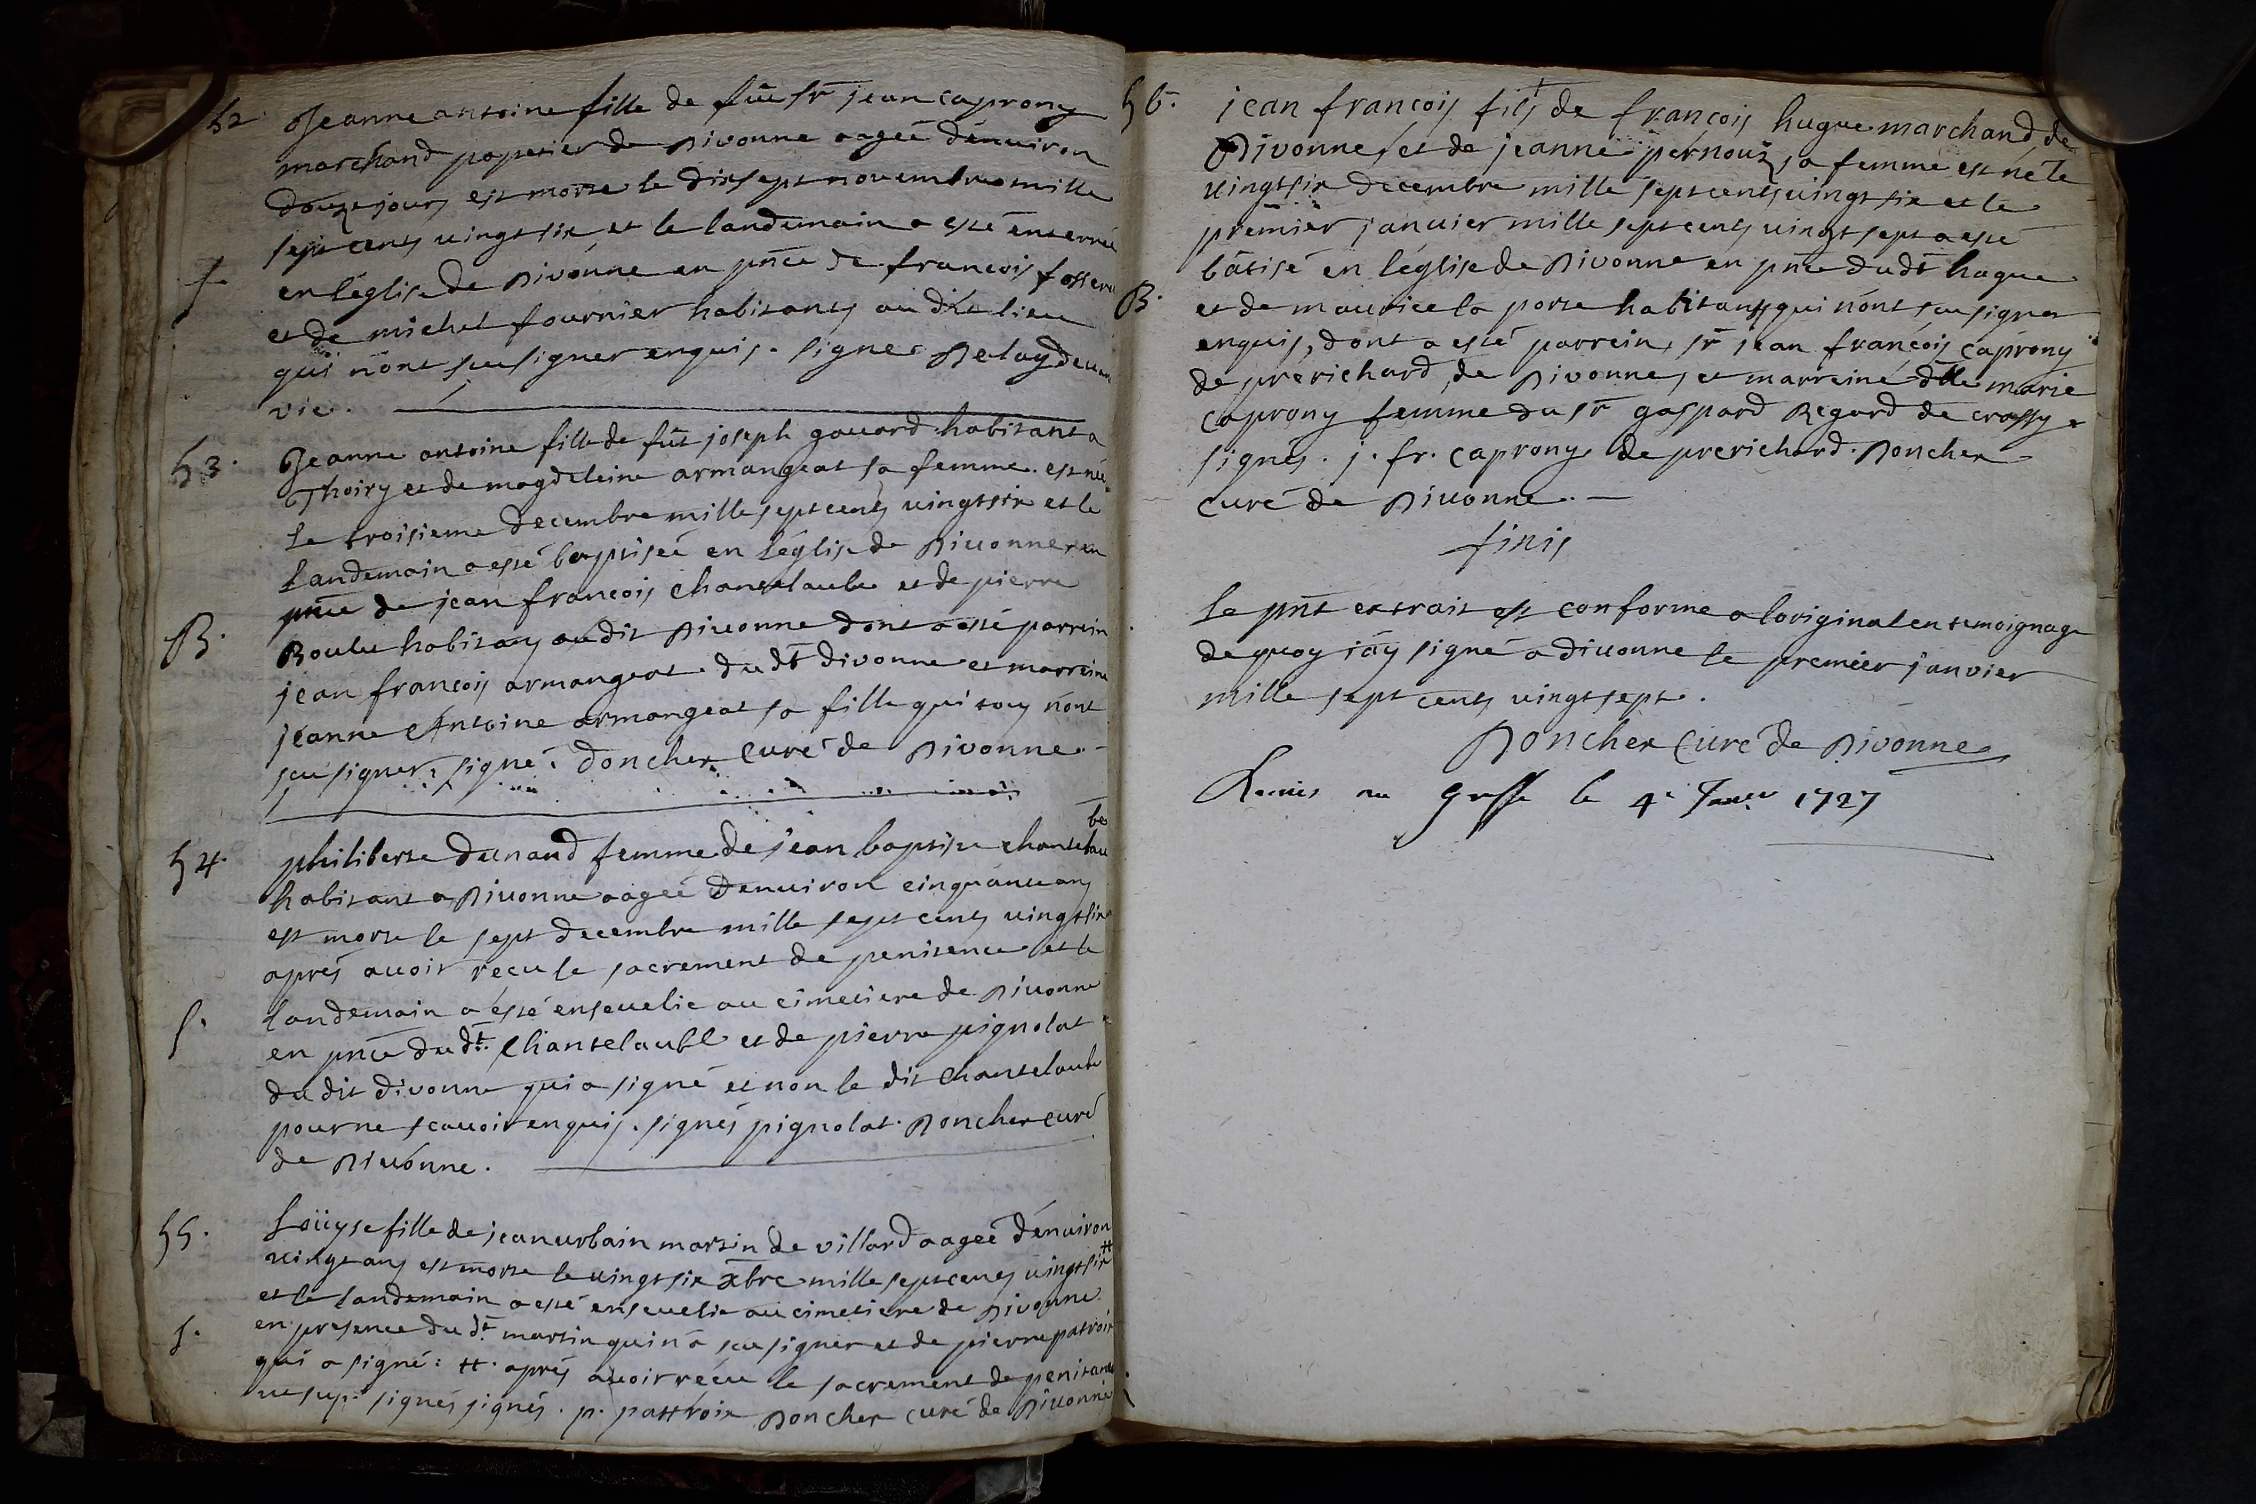 52. Jeanne antoine fille de fût Sr jean caprony
marchand papetier de Divonne aageé dénuiron
douze jours est morte le dixsept nouembre mille
sept cents uingt six et le landemain a esté enterrée
S. en léglise de Divonne en pnce de francois fosseret
et de michel fournier habitants au dit lieu
qui nont sçu signer enquis. signé Delay de
vic.
53. Jeanne antoine fille de fût joseph gouard habitant a
Thoiry et de magdeleine armangeat sa femme. est née
le troisieme decembre mille sept cents uingt six et le
landemain a esté baptiseé en léglise de Diuonne en
pnce de jean francois chantelaube et de pierre
B. Roulet habitans audit Diuonne dont a esté parrein
jean francois armangeat du dt divonne et marreine
jeanne Antoine armangeat sa fille qui tous nont
sçu signer, signé. doncher curé de Divonne.
be
54. philiberte dunand femme de jean baptiste chantelau
habitant a Diuonne aageé denuiron cinquante ans
est morte le sept decembre mille sept cents uingt six
aprés auoir recu le sacrement de penitence et le
S. landemain a esté enseuelie au cimetiere de Diuonne
en pnce du dt. chantelaube et de pierre pignolat
du dit divonne qui a signé et non le dit chantelaube
pour ne scauoir enquis. signés pignolat. Doncher curé
de Diuonne.
55. Loüyse fille de jean urbain martin de villard aageé dénuiron
uingt ans est morte le uingt six xbre mille sept cents uingt six #
et le landemain a esté enseuelie au cimetiere de Divonne
S. en presence du dt. martin qui n'a sçu signer et de pierre patroix
qui a signé: #. aprés auoir récu le sacrement de penitance
ut sup. signés signés. p. pattroix Doncher curé de Diuonne
56. jean francois fils de francois hugue marchand de
Divonne, et de jeanne pernoux sa femme est né le
uingt six decembre mille sept cents uingt six et le
premier januier mille sept cents uingt sept a esté
bâtisé en léglise de Divonne en pnce dudt hugue
B. et de maurice la porte habitants qui nont sçu signer
enquis, dont a esté parrein, sr jean francois caprony
de prerichard, de Divonne, et marreiné dlle marie
caprony femme du sr gaspard Regard de crassy.
signés. j. fr. caprony de prerichard. Doncher
curé de Diuonne.
finis
Le pnt extrait est conforme a loriginal en temoignage
de quoy jáy signé a diuonne le premier janvier
mille sept cents uingt sept.
Doncher Curé de Divonne
Remis au Greffe le 4e Januer 1727